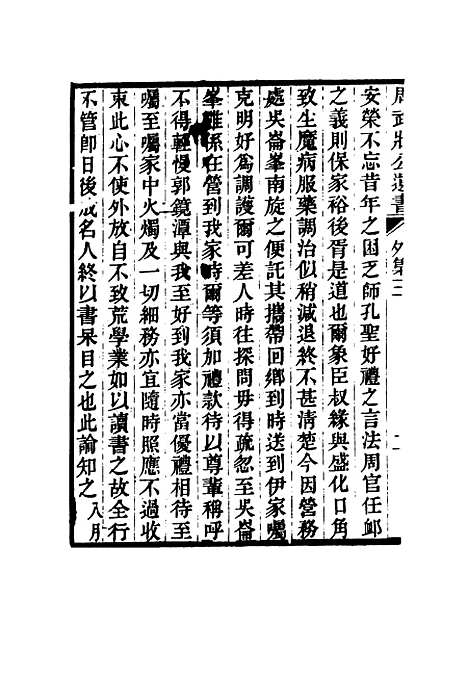 周武壯公遺書 外集二 二
安榮不忘昔年之困乏師孔聖好禮之言法周官任卹
之義則保家裕後胥是道也爾象臣叔緣與盛化口角
致生魔病服藥調治似稍減退終不甚清楚今因營務
處吳崙峯南旋之便託其攜帶回鄉到時送到伊家囑
克明好為調護爾可差人時往探問毋得疏忽至吳崙
峯雖係在營到我家時爾等須加禮款待以尊輩稱呼
不得輕慢郭鏡潭與我至好到我家亦當優禮相待至
囑至囑家中火燭及一切細務亦宜隨時照應不過收
束此心不使外放自不致荒學業如以讀書之故全行
不管即日後成名人終以書呆目之也此諭知之 八月